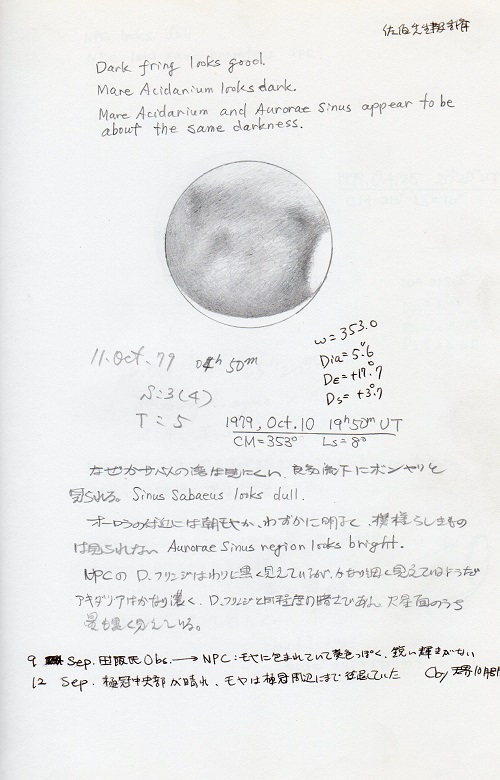 佐伯先生報告済
Dark fring looks good.
Mare Acidarium looks dark.
Mare Acidarium and Aurorae Sinus appear to be
about the same darkness.
ω=353.0
Dia=5.6
DE=+17.7
Ds=+3.7
11. Oct. 79 04h 50m
S:3(4)
T:5
1979, Oct. 10 19h50m UT
CM=353° Ls=8°
見られる。 Sinus Sabaeus looks dull.
オーロラの付近には朝モヤか、わずかに明るく、模様らしきもの
は見られない Aurorae Sinus region looks bright.
NPCの D.フリンジはわりに黒く見えているが、かなり細く見えているようだ
アキダリアはかなり濃く、D.フリンジと同程度の暗さである。火星面のうち
最も黒く見えている。
9 Sep. 田阪氏 Obs. → NPC:モヤに包まれていて黄色っぽく、鋭い輝きがない
12 Sep. 極冠中央部が晴れ、モヤは極冠周辺にまで後退していた